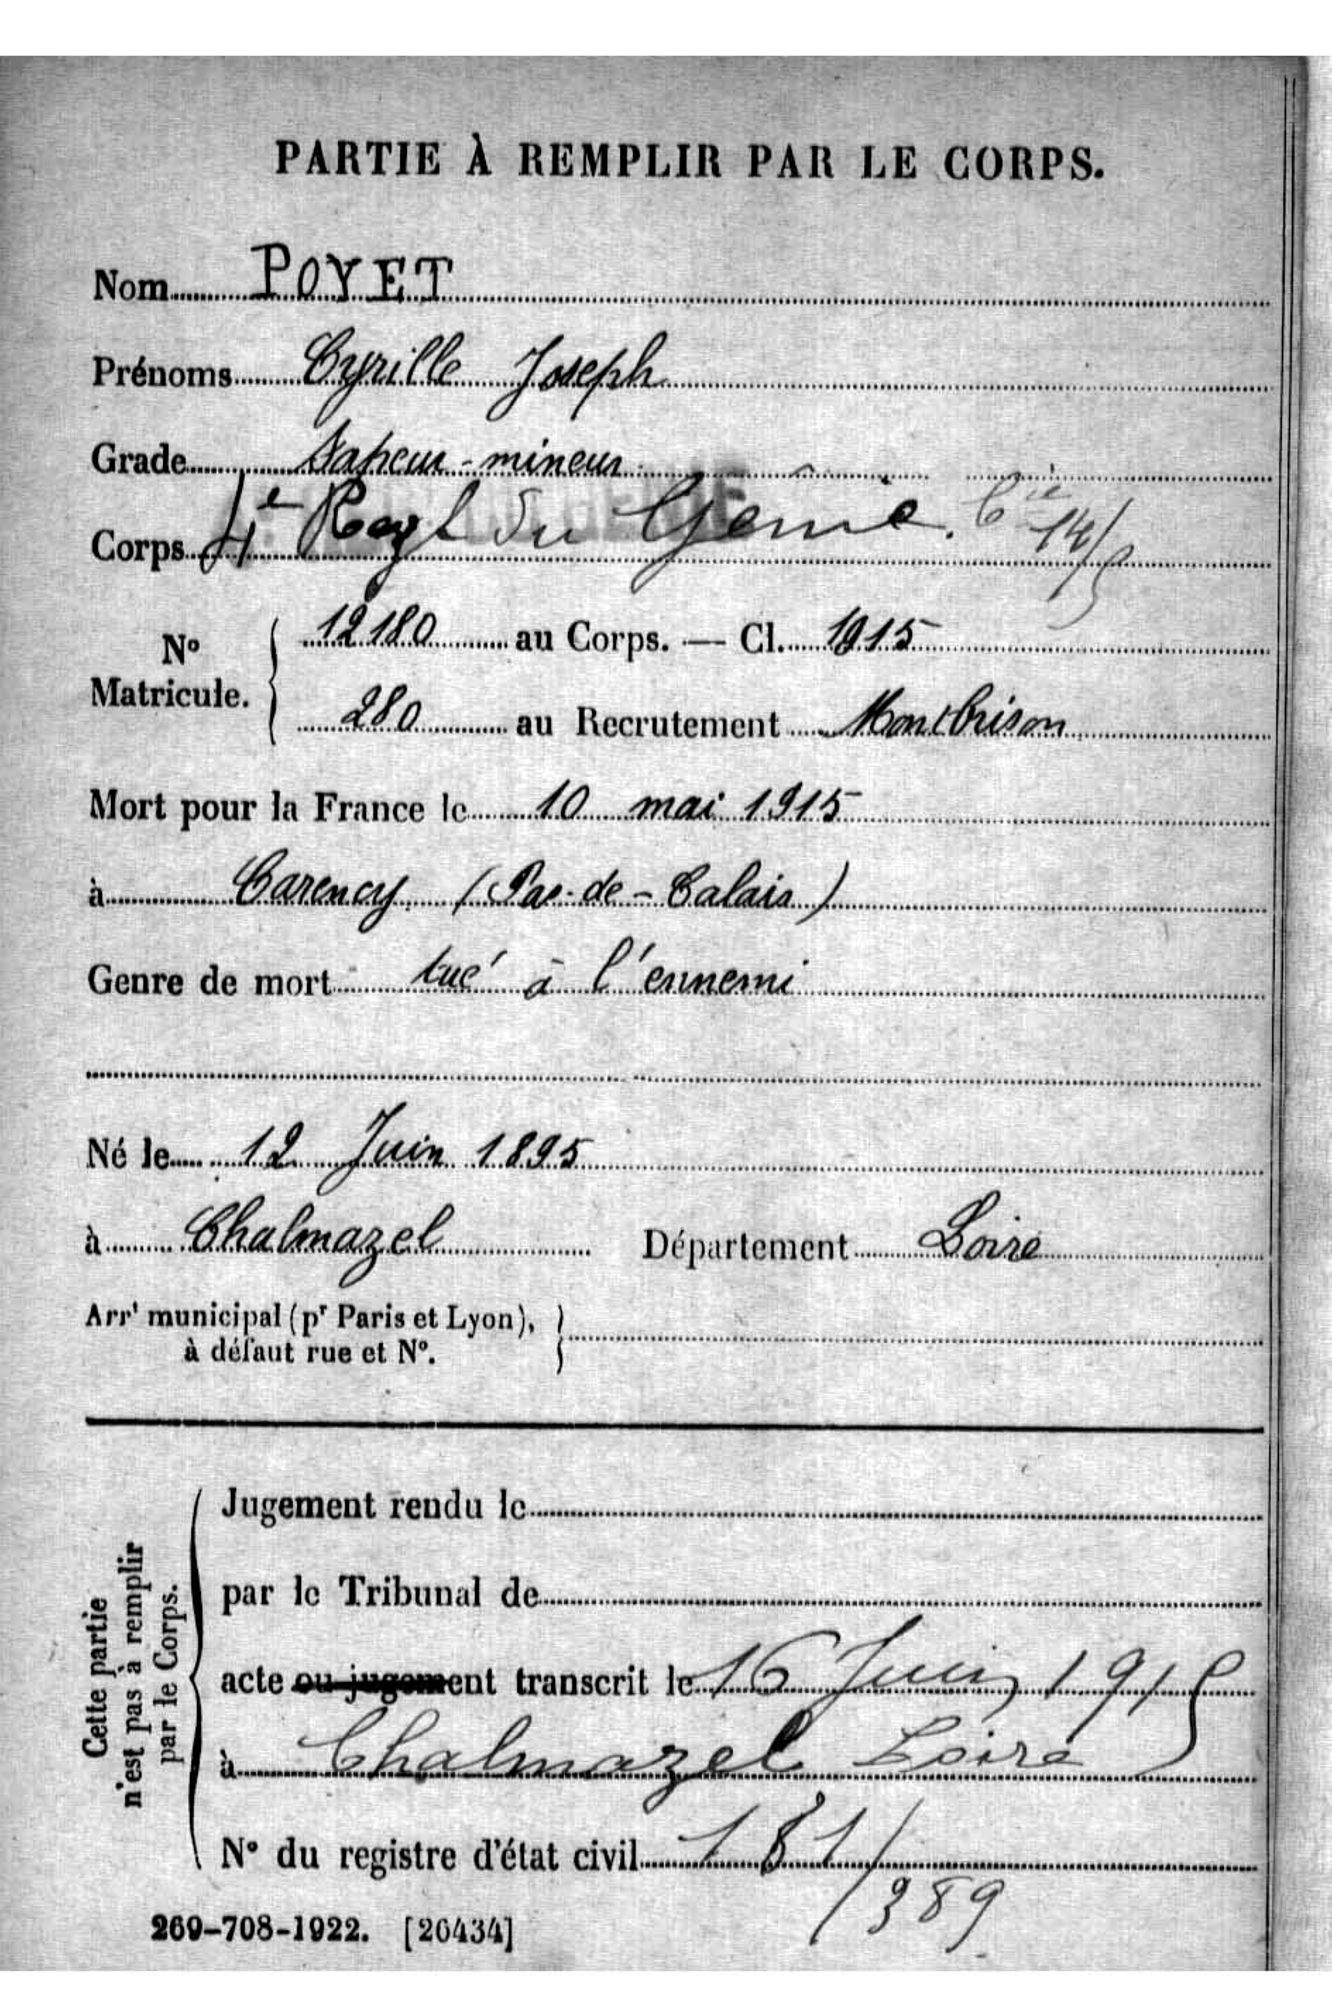 PARTIE À REMPLIR PAR LE CORPS.
Nom POYET
Prénoms Cyrille Joseph
Grade Sapeur-mineur
Corps 4e Regt du Génie. Cie 14/5
No Matricule. 12180 au Corps. — Cl. 1915
280 au Recrutement Montbrison
Mort pour la France le 10 mai 1915
à Carency (Pas-de-Calais)
Genre de mort tué à l'ennemi
Né le 12 Juin 1895
à Chalmazel Département Loire
Arrt municipal (pr Paris et Lyon),
à défaut rue et No.
Cette partie
n'est pas à remplir
par le Corps.
Jugement rendu le
par le Tribunal de
acte ou jugement transcrit le 16 Juin 1915
à Chalmazel Loire
No du registre d'état civil 181/389
269-708-1922. [26434]